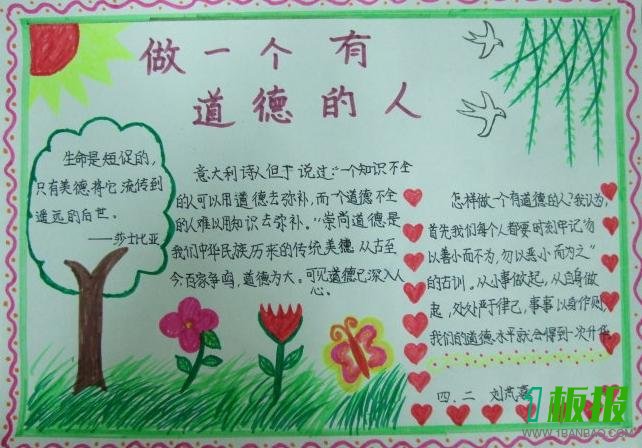 做一个有
道德的人
生命是短促的，
只有美德将它流传到
遥远的后世。
——莎士比亚
意大利诗人但丁说过："一个知识不全
的人可以用道德去弥补，而一个道德不全
的人难以用知识去弥补。"崇尚道德是
我们中华民族历来的传统美德。从古至
今百家争鸣，道德为大。可见道德已深入人
心。
怎样做一个有道德的人？我认为，
首先我们每个人都要时刻牢记"勿
以善小而不为，勿以恶小而为之"
的古训。从小事做起，从自身做
起，处处严于律己，事事以身作则，
我们的道德水平就会得到一次升华
四.二 刘
1板报
WWW.1BANBAO.COM